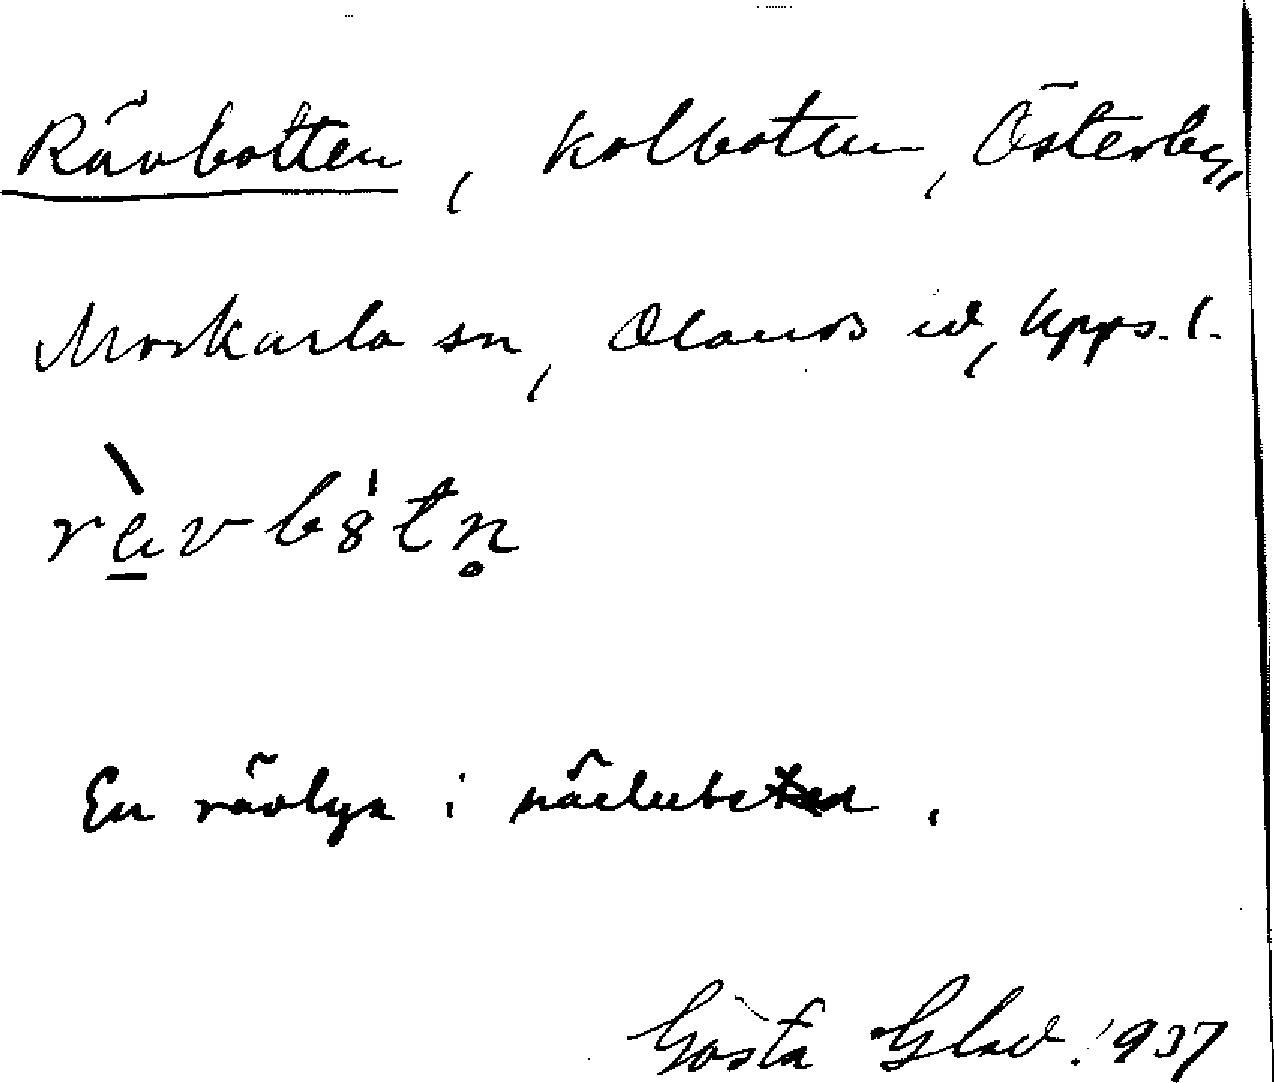 Rävbotten, kolbotten, Österby,
Morkarla sn, Olands hd, Upps. l.
En rävlya i närheten.
Gösta Glad. 1937